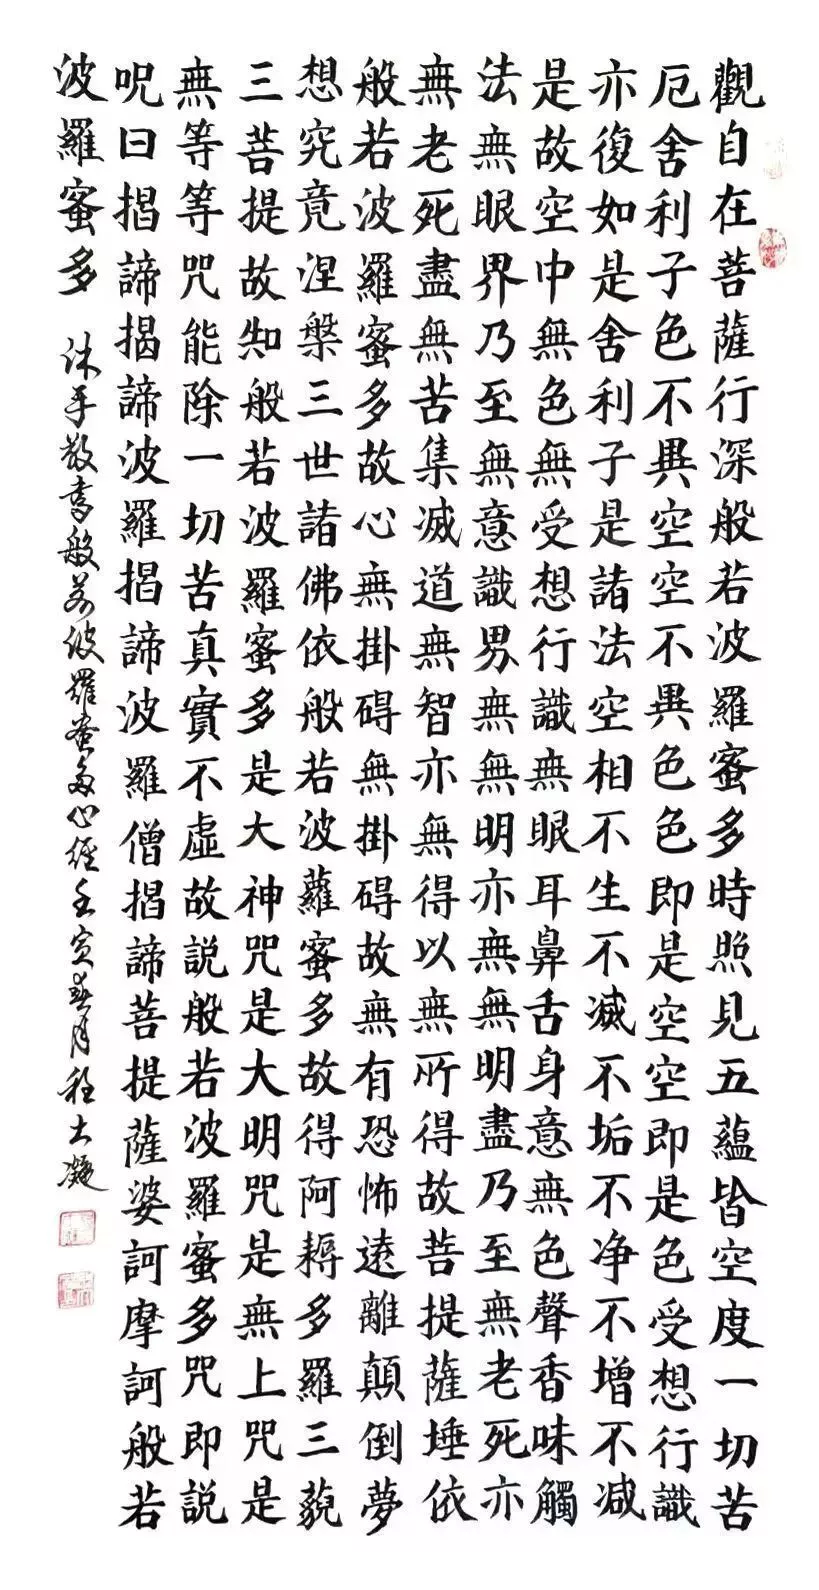 觀自在菩薩行深般若波羅蜜多時照見五蘊皆空度一切苦
厄舍利子色不異空空不異色色即是空空即是色受想行識
亦復如是舍利子是諸法空相不生不滅不垢不净不增不减
是故空中無色無受想行識無眼耳鼻舌身意無色聲香味觸
法無眼界乃至無意識男無無明亦無無明盡乃至無老死亦
無老死盡無苦集滅道無智亦無得以無所得故菩提薩埵依
般若波羅蜜多故心無掛碍無掛碍故無有恐怖遠離顛倒夢
想究竟涅槃三世諸佛依般若波蘿蜜多故得阿耨多羅三藐
三菩提故知般若波羅蜜多是大神咒是大明咒是無上咒是
無等等咒能除一切苦真實不虛故説般若波羅蜜多咒即説
呪曰揭諦揭諦波羅揭諦波羅僧揭諦菩提薩婆訶摩訶般若
波羅蜜多 沐手敬書般若波羅蜜多心經壬寅春月程士凝